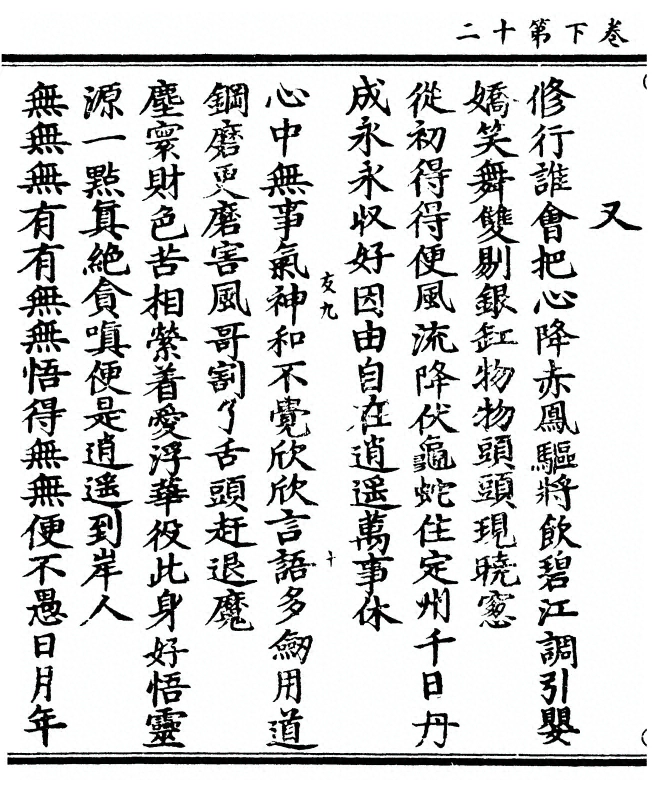 卷下第十二
又
修行誰會把心降赤鳳驅將飲碧江調引嬰
嬌笑舞雙剔銀缸物物頭頭現曉窓
從初得得便風流降伏龜蛇住定州千日丹
成永永収好因由自在逍遥萬事休
亥九
心中無事氣神和不覺欣欣言語多劒用道
十
鋼磨更磨害風哥割了舌頭赶退魔
塵寰財色苦相縈着愛浮華役此身好悟靈
源一點真絶貪嗔便是逍遥到岸人
無無無有有無無悟得無無便不愚日月年